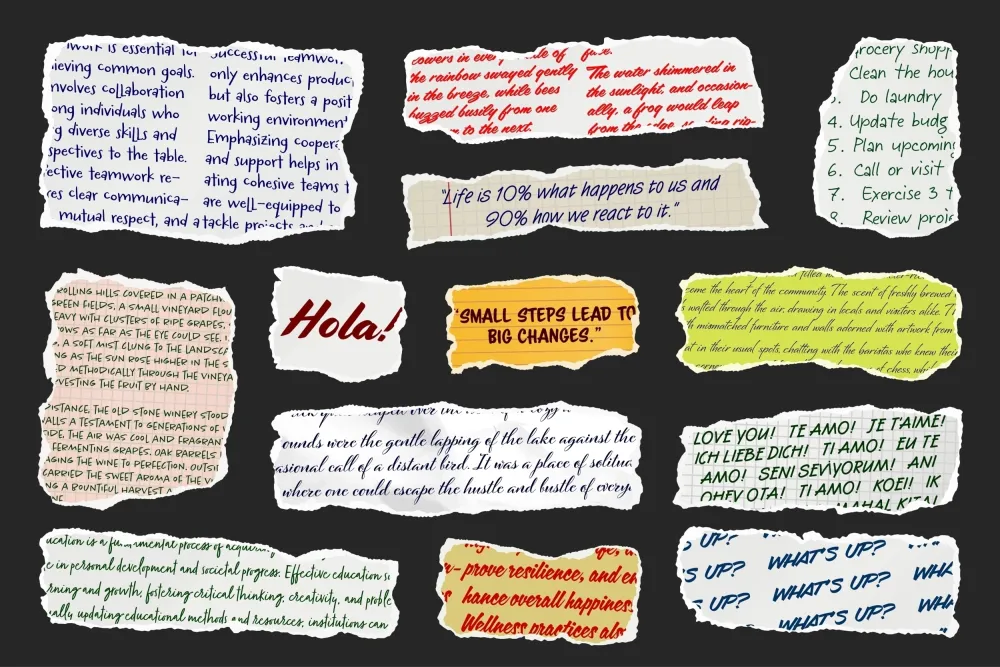 is essential
ieving common goals.
nvolves collaboration
ong individuals who
g diverse skills and
spectives to the table.
ective teamwork re-
res clear communica-
mutual respect, and a
successful teamwor
only enhances produc
but also fosters a posit
working environmen
Emphasizing cooper
and support helps in
ating cohesive teams t
are well-equipped to
tackle projects
owers in ever of
the rainbow swayed gently
in the breeze, while bees
buzzed busily from one
to the next.
The water shimmered in
the sunlight, and occasion-
ally, a frog would leap
from the
"Life is 10% what happens to us and
90% how we react to it."
rocery shopp
Clean the hou
Do laundry
4. Update budg
5. Plan upcoming
6. Call or visit
7. Exercise 3 t
8. Review proje
ROLLING HILLS COVERED IN A PATCH
GREEN FIELDS, A SMALL VINEYARD FLOU
EAVY WITH CLUSTERS OF RIPE GRAPES,
OWS AS FAR AS THE EYE COULD SEE.
, A SOFT MIST CLUNG TO THE LANDSCA
NG AS THE SUN ROSE HIGHER IN THE S
D METHODICALLY THROUGH THE VINEYA
VESTING THE FRUIT BY HAND.
ISTANCE, THE OLD STONE WINERY STOOD
ALLS A TESTAMENT TO GENERATIONS OF
IDE, THE AIR WAS COOL AND FRAGRAN
FERMENTING GRAPES. OAK BARRELS
AGING THE WINE TO PERFECTION. OUTSI
CARRIED THE SWEET AROMA OF THE V
NG A BOUNTIFUL HARVEST A
Hola!
"SMALL STEPS LEAD TO
BIG CHANGES."
filled
ome the heart of the community. The scent of freshly brewed
wafted through the air, drawing in locals and visitors alike. T
h mismatched furniture and walls adorned with artwork from
at in their usual spots, chatting with the baristas who knew their
of chess, whil
over
ounds were the gentle lapping of the lake against the
asional call of a distant bird. It was a place of solitu
where one could escape the hustle and bustle of every
LOVE YOU! TE AMO! JE T'AIME!
ICH LIEBE DICH! TI AMO! EU TE
AMO! SENI SEVIYORUM! ANI
OHEV OTA! TI AMO! KOEI! IK
MAHAL KITA!
ucation is a fundamental process of acquirin
e in personal development and societal progress. Effective education s
rning and growth, fostering critical thinking, creativity, and proble
ually updating educational methods and resources, institutions can
- prove resilience, and en
hance overall happines
Wellness practices als
S UP? WHAT'S UP?
S UP? WHAT'S UP? WHA
S UP? WHAT'S UP? WHA
WHAT'S UP?